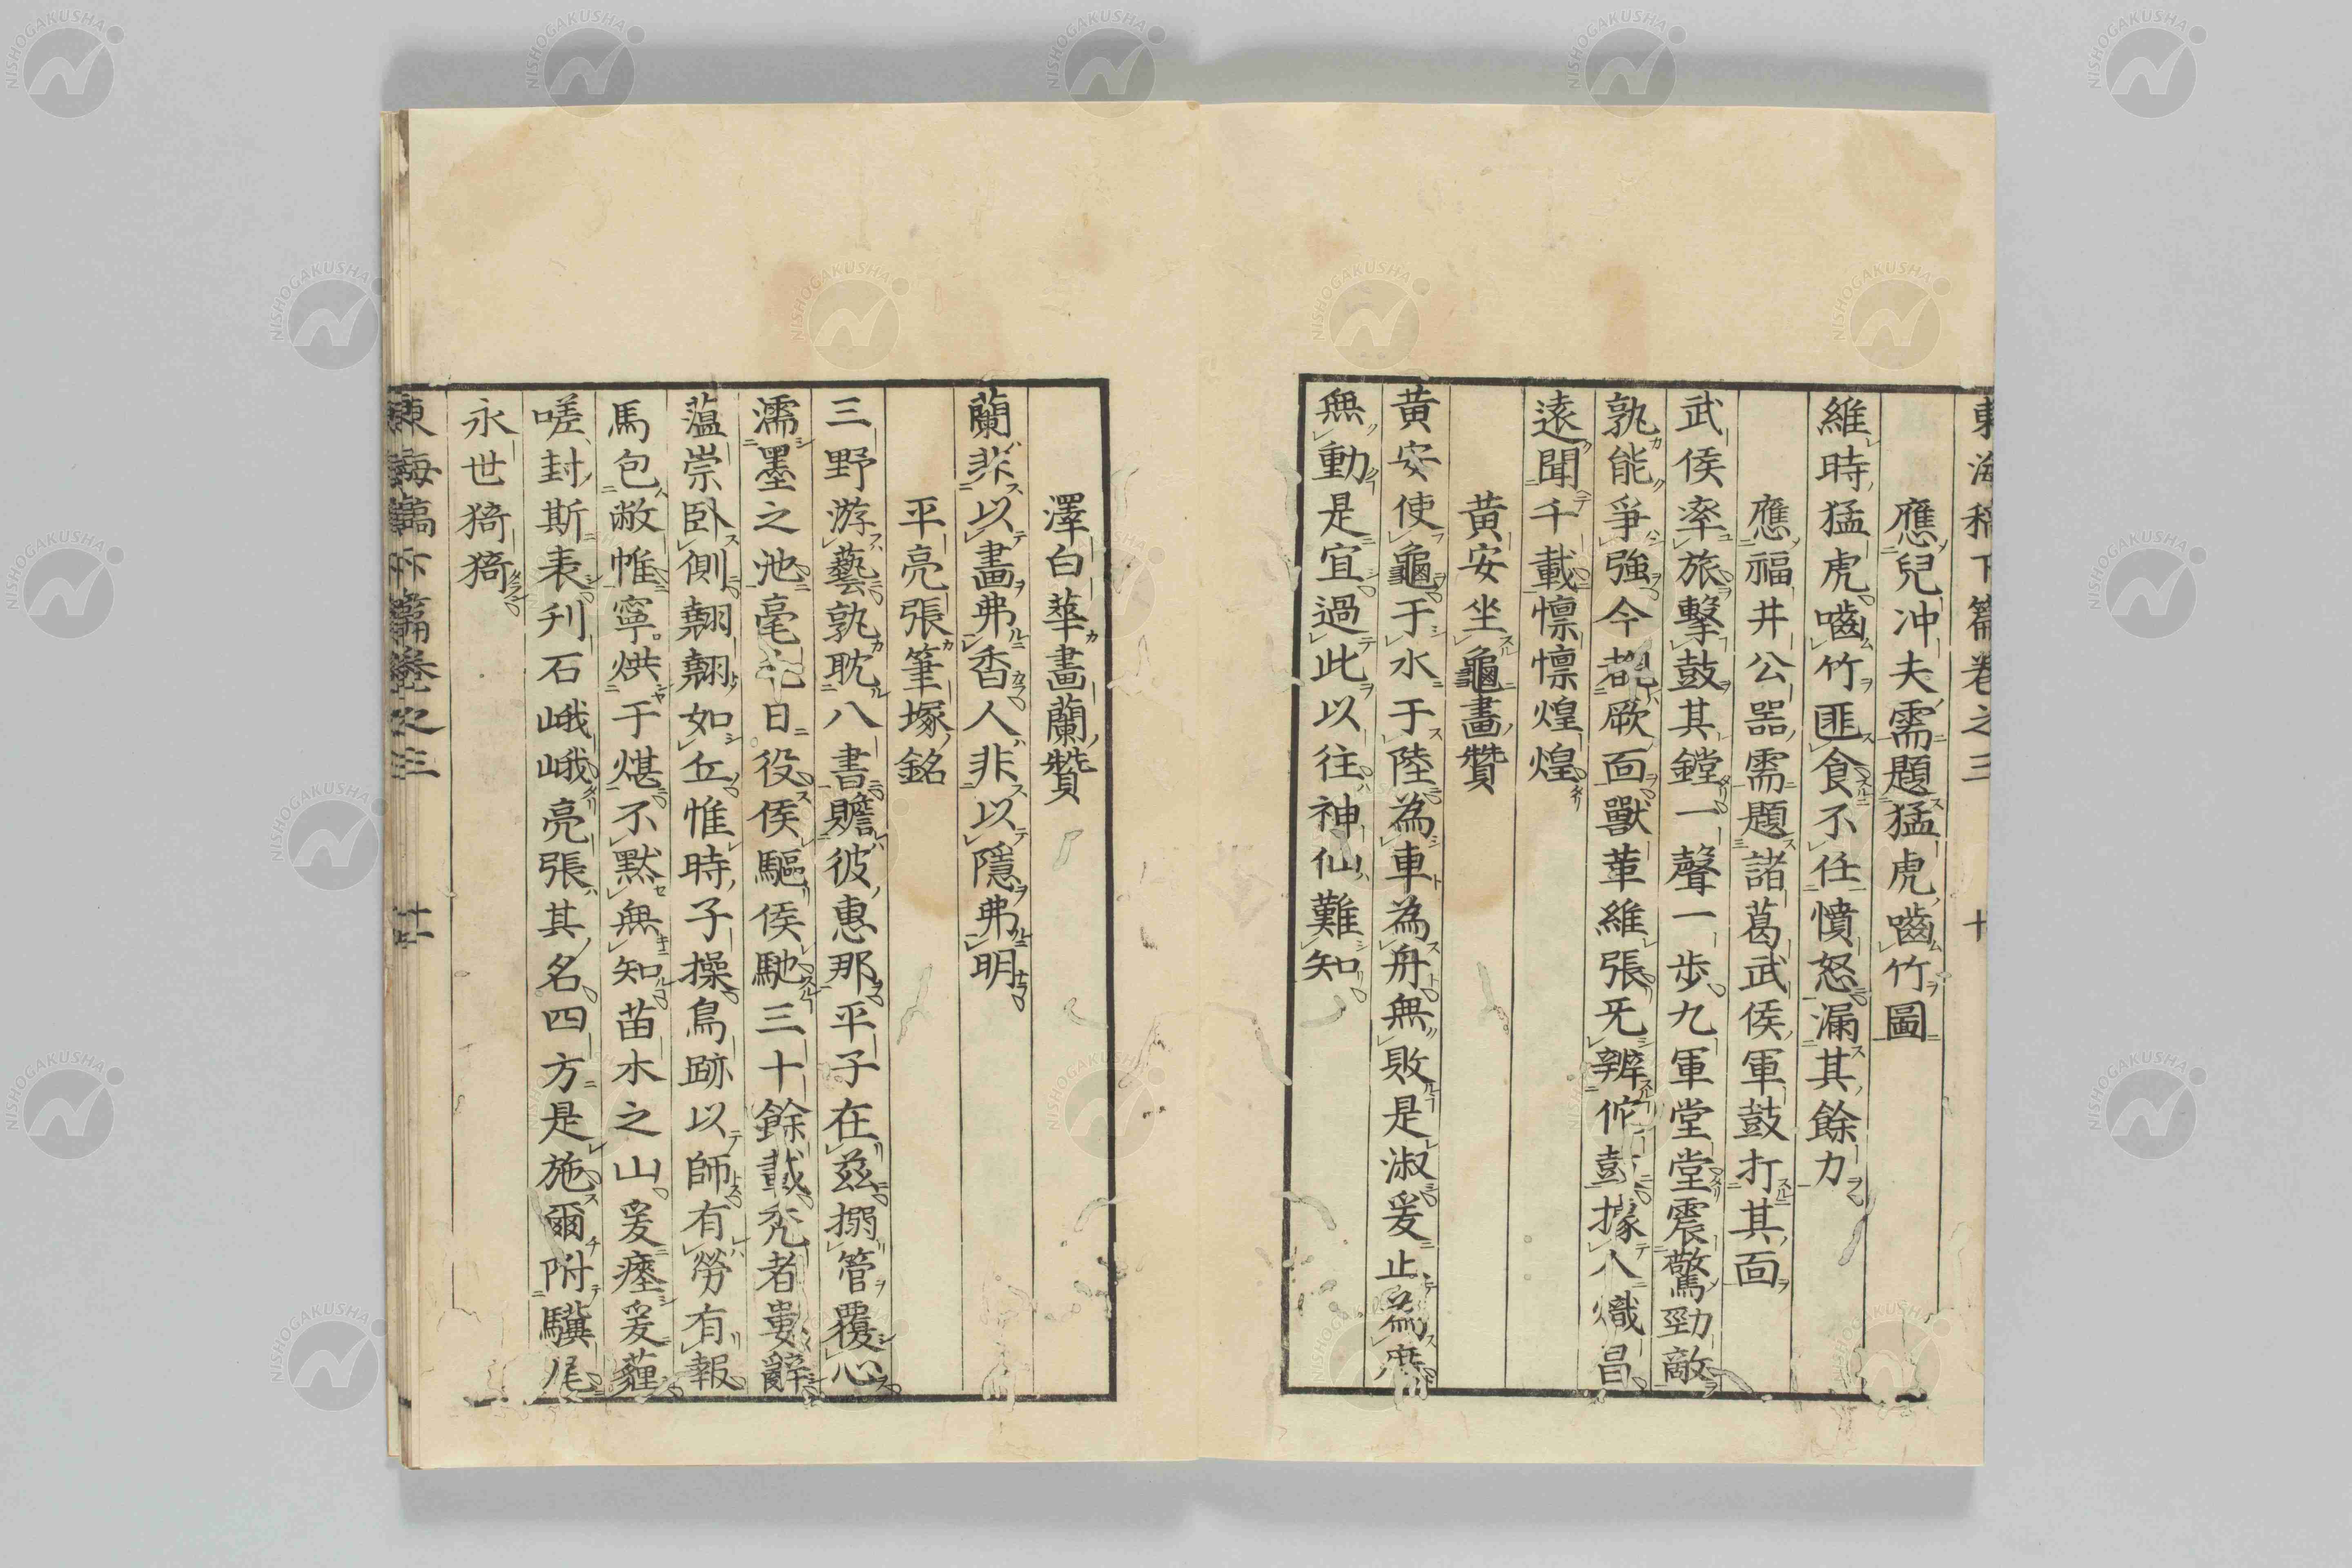 東海稿下篇卷之三 十
應兒冲夫需題猛虎嚙竹圖
維時猛虎嚙竹匪食不任憤怒漏其餘力
應福井公噐需題諸葛武侯軍鼓打其面
武侯率旅擊鼓其鏜一聲一步九軍堂堂震驚勁敵
孰能爭強今覩厥面獸革維張旡辨佗彭據人熾昌
遠聞千載懍懍煌煌
黃安坐龜畫贊
黃安使龜于水于陸為車為舟無敗是淑爰止為席
無動是宜過此以往神仙難知
澤白華畫蘭贊
蘭非以畫弗香人非以隱弗明
平亮張筆塚銘
三野游藝孰耽八書贍彼惠那平子在茲搦管覆心
濡墨之池毫 日役侯驅侯馳三十餘載禿者婁辭
薀崇卧側翹翹如丘惟時子操鳥跡以師有勞有報
馬包敝帷寧烘于煁不黙無知苗木之山爰瘞爰薶
嗟封斯表刋石峨峨亮張其名四方是施爾附驥尾
永世猗猗
東海稿下篇卷之三